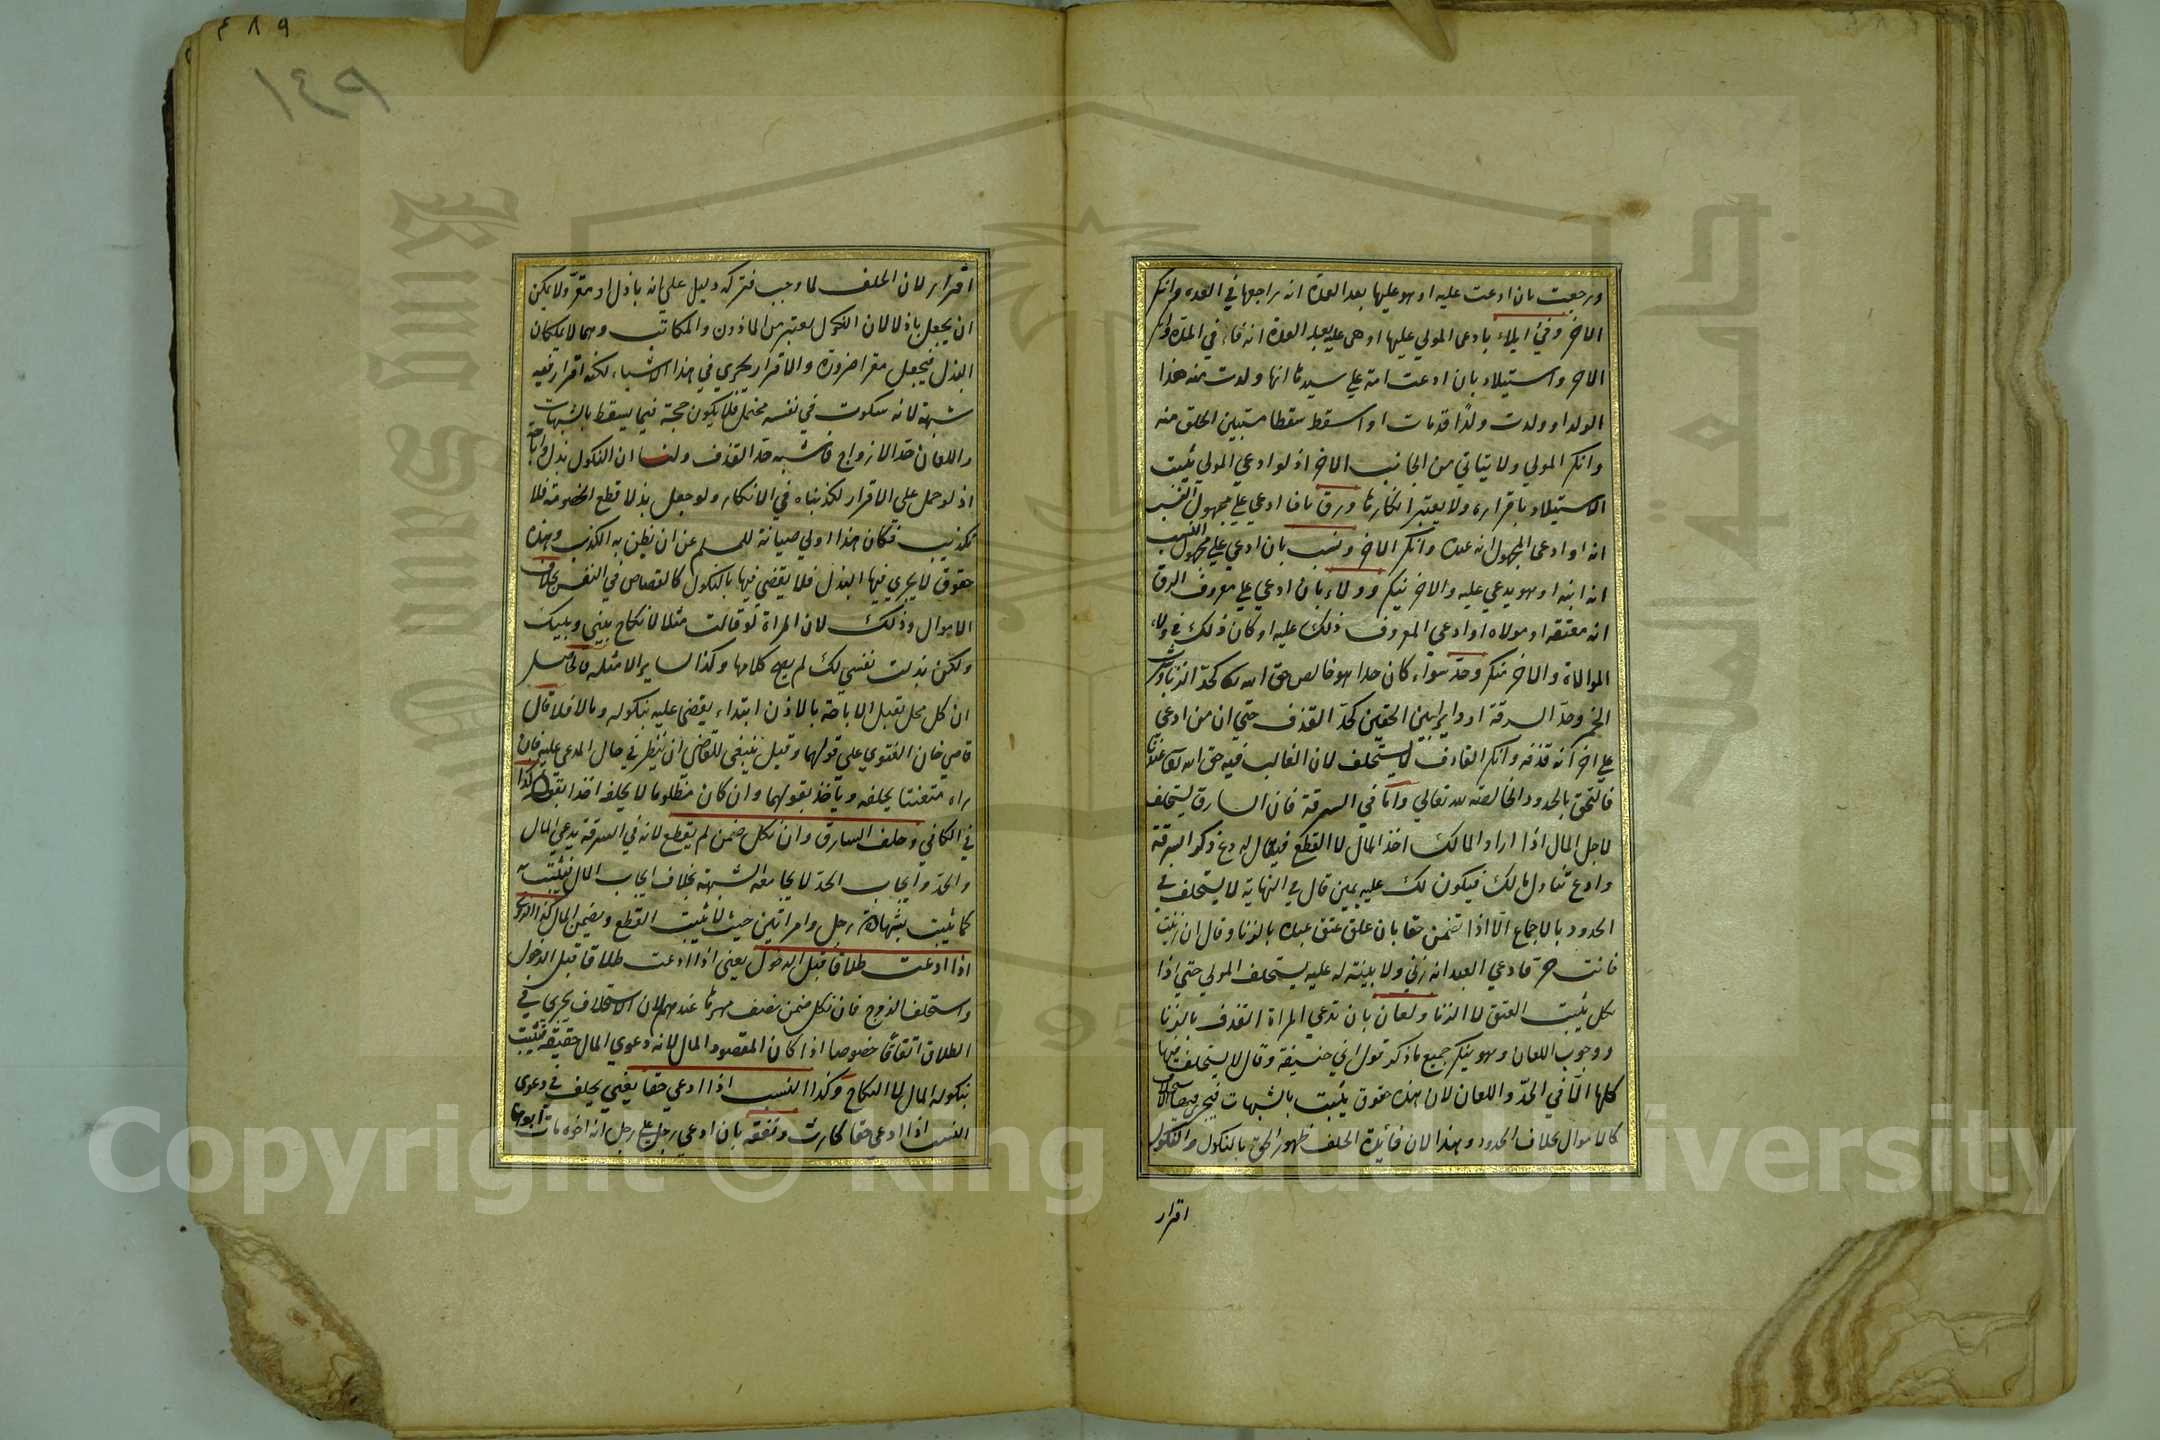 ورجعت بان ادعت عليه او هو عليها بعد العدة انه راجعها في العدة وانكر
الاخر وفئ ايلاء بادعى المولي عليها او هى عليه بعد العدة انه فاء في المدة وانكر
الاخر واستيلاد بان ادعت امة علي سيدها انها ولدت منه هذا
الولد او ولدت ولدًا قد مات او اسقط سقطا مستبين الخلق منه
وانكر المولي ولا يتاتي من الجانب الاخر اذ لو ادعي المولي يثبت
الاستيلاد باقراره ولا يعتبر انكارها ورق بان ادعي علي مجهول النسب
انه او ادعى المجهول انه عبده وانكر الاخر ونسب بان ادعي علي مجهول النسب
انه ابنه او هو يدعي عليه والاخر ينكر وولاء بان ادعي علي معروف الرق
انه معتقه او مولاه او ادعي المعروف ذلك عليه او كان ذلك في ولاء
الموالاة والاخر منكر وحد سواء كان حدا هو خالص حق الله كحد الزنا وشرب
الخمر وحد السرقة او دايرا بين الحقين كحد القذف حتي ان من ادعي
علي اخر انه قذفه وانكر القاذف لا يستحلف لان الغالب فيه حق الله عندنا
فالتحق بالحدود الخالصة لله تعالي واما في السرقة فان السارق يستحلف
لاجل المال اذا اراد المالك اخذ المال لا القطع فيقال له دع ذكر السرقة
وادع تناول مالك فيكون لك عليه يمين قال في النهاية لا يستحلف في
الحدود بالاجماع الّا اذا تضمن حقا بان علق عتق عبده بالزنا وقال ان زنيت
فانت حر فادعي العبد انه زني ولا بينة له عليه يستحلف المولي حتي اذا
نكل يثبت العتق لا الزنا ولعان بان تدعي المراة القذف بالزنا
ووجوب اللعان وهو ينكر جميع ما ذكر قول ابي حنيفة وقالا يستحلف فيها
كلها الّا في الحدّ واللعان لان هذه حقوق يثبت بالشبهات فيجري فيها الاستحلاف
كالاموال بخلاف الحدود وهذا لان فائدة الحلف ظهور الحق بالنكول والنكول
اقرار
٤٨٩
١٤٩
اقرار لان الحلف لما وجب فتركه دليل علي انه باذل او مقر ولا يمكن
ان يجعل باذلا لان النكول يعتبر من الماذون والمكاتب وهما لا يملكان
البذل فيجعل مقرا ضرورة والاقرار يجري في هذا الاشياء لكنه اقرار فيه
شبهة لانه سكوت في نفسه محتمل فلا يكون حجة فيما يسقط بالشبهات
واللعان حد الازواج فاشبه حد القذف ولنا ان النكول بذل واباحة
اذ لو حمل على الاقرار لكذبناه في الانكار ولو جعل بذلا قطع الخصومة فلا
تكذيب فكان هذا اولي صيانة للمسلم عن ان يظن به الكذب وهذه
حقوق لا يجري فيها البذل فلا يقضي فيها بالنكول كالقصاص في النفس بخلاف
الاموال وذلك لان المراة لو قالت مثلا لا نكاح بيني وبينك
ولكن بذلت نفسي لك لم يصح كلامها وكذا ساير الامثلة فالحاصل
ان كل محل تقبل الاباحة بالاذن ابتداء يقضي عليه بنكوله وما لا فلا قال
قاضي خان الفتوي على قولهما وقيل ينبغي للقاضي ان ينظر في حال المدعي عليه فان
راه متعنتا يحلفه وياخذ بقولهما وان كان مظلوما لا يحلفه اخذا بقوله كذا
في الكافي وحلف السارق وان نكل ضمن لم يقطع لانه في السرقة يدعي المال
والحد وايجاب الحدّ لا يجامعه الشبهة بخلاف ايجاب المال فيثبت به
كما يثبت بشهادة رجل وامراتين حيث لا يثبت القطع ويضمن المال كذا الزوج
اذا ادعت طلاقا قبل الدخول يعني اذا ادعت طلاقا قبل الدخول
واستحلف الزوج فان نكل ضمن نصف مهرها عندهم لان الاستحلاف يجري في
الطلاق اتفاقا خصوصا اذا كان المقصود المال لانه دعوي المال حقيقة فيثبت
بنكوله المال لا النكاح وكذا النسب اذا ادعي حقا يعني يحلف في دعوي
النسب اذا ادعي حقا كارث ونفقة بان ادعي رجل علي رجل انه اخوه مات ابوهما
Copyright © King Saud University